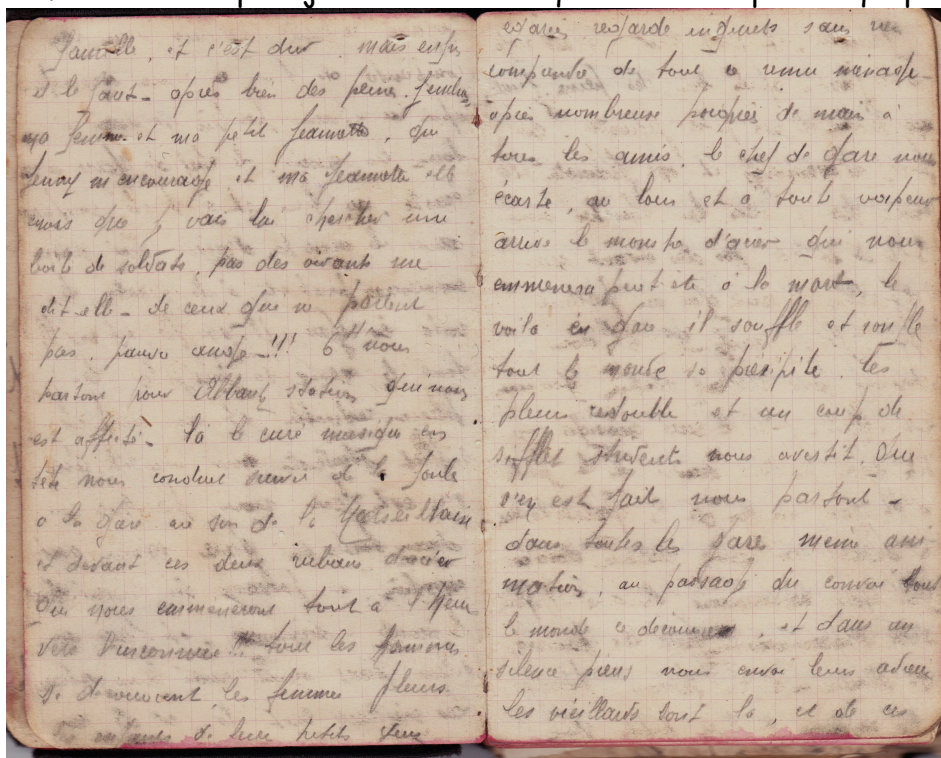 famille, et c'est dur mais enfin
il le faut - apres bien des peine. j'embrasse
ma femme et ma petit Jeannette, que
Jenny m'encourage et ma Jeannette elle
crois que je vais lui chercher une
boite de soldats, pas des vivants me
dit-elle - de ceux que ne partent
pas. pauvre ange -!!! 6H nous
partons pour station qui nous
est affecté - la le curé musique en
tete nous conduit suivie de la foule
a la gare au son de la Marseillaise
et devant ces deux rubans d'acier
qui nous emmeneront tout a l'heure
vers l'inconnue!! tous les hommes
se decouvrent, les femmes pleurs
les enfants de leurs petits yeux
egarés regarde inquiets sans rien
comprendre de tout ce remu menage -
après nombreuse poignée de main a
tous les amis. le chef de gare nous
écarte, au loin et a toute vapeur
arrive le monstre d'acier qui nous
emmenera peut etre a la mort, le
voila en gare il souffle et souffle
tout le monde se precipite. les
pleurs redouble et un coup de
sifflet strident nous avertit. que
s'en est fait nous partont -
dans toutes les gares meme ani
mation, au passage du convoi tout
le monde a decouvert, et dans un
silence pieux nous envoi leurs adieux
les vieillards sont la, et de ces